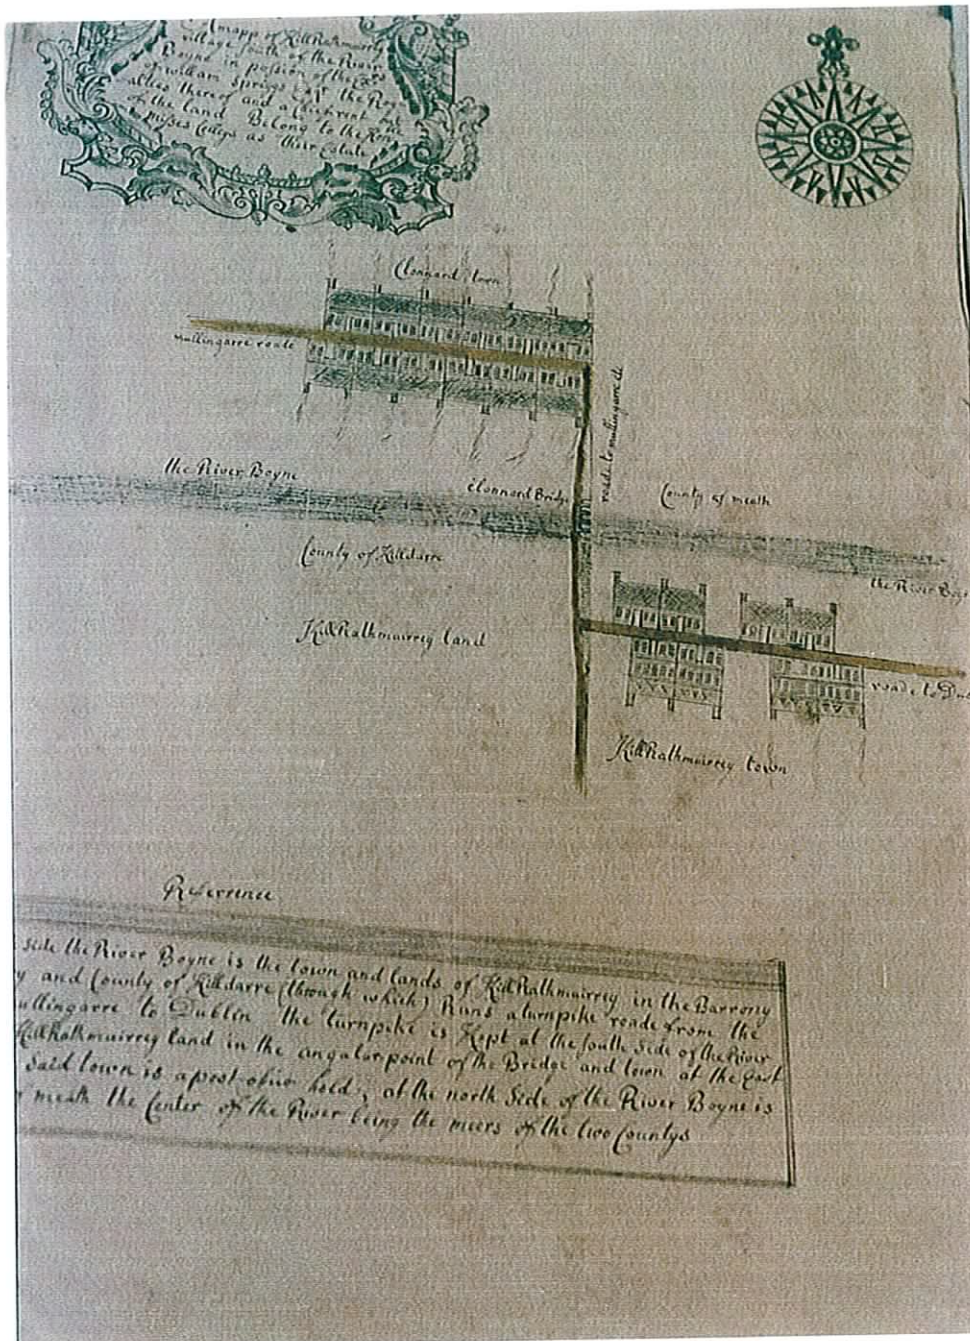 A mapp of KillRathmuirrey
village South of the River
Boyne in possion of the
of william Spriggs Esqr the Roy
alties thereof and a Chief rent out
of the land Belong to the Hon
misses as their Estate
Clonnard town
mullingarre roade
roade to mullingarre
the River Boyne
Clonnard Bridge
County of meath
County of Killdarre
the River Boy
KillRathmuirrey land
roade to Du
KillRathmuirrey town
Referrence
side the River Boyne is the town and lands of KillRathmuirrey in the Barrony
y and County of Killdarre (through which) Runs a turnpike roade from the
ullingarre to Dublin the turnpike is Kept at the South Side of the River
KillRathmuirrey land in the angular point of the Bridge and town at the East
Said town is a post ofice held, at the north Side of the River Boyne is
meath the Center of the River being the meers of the two Countys